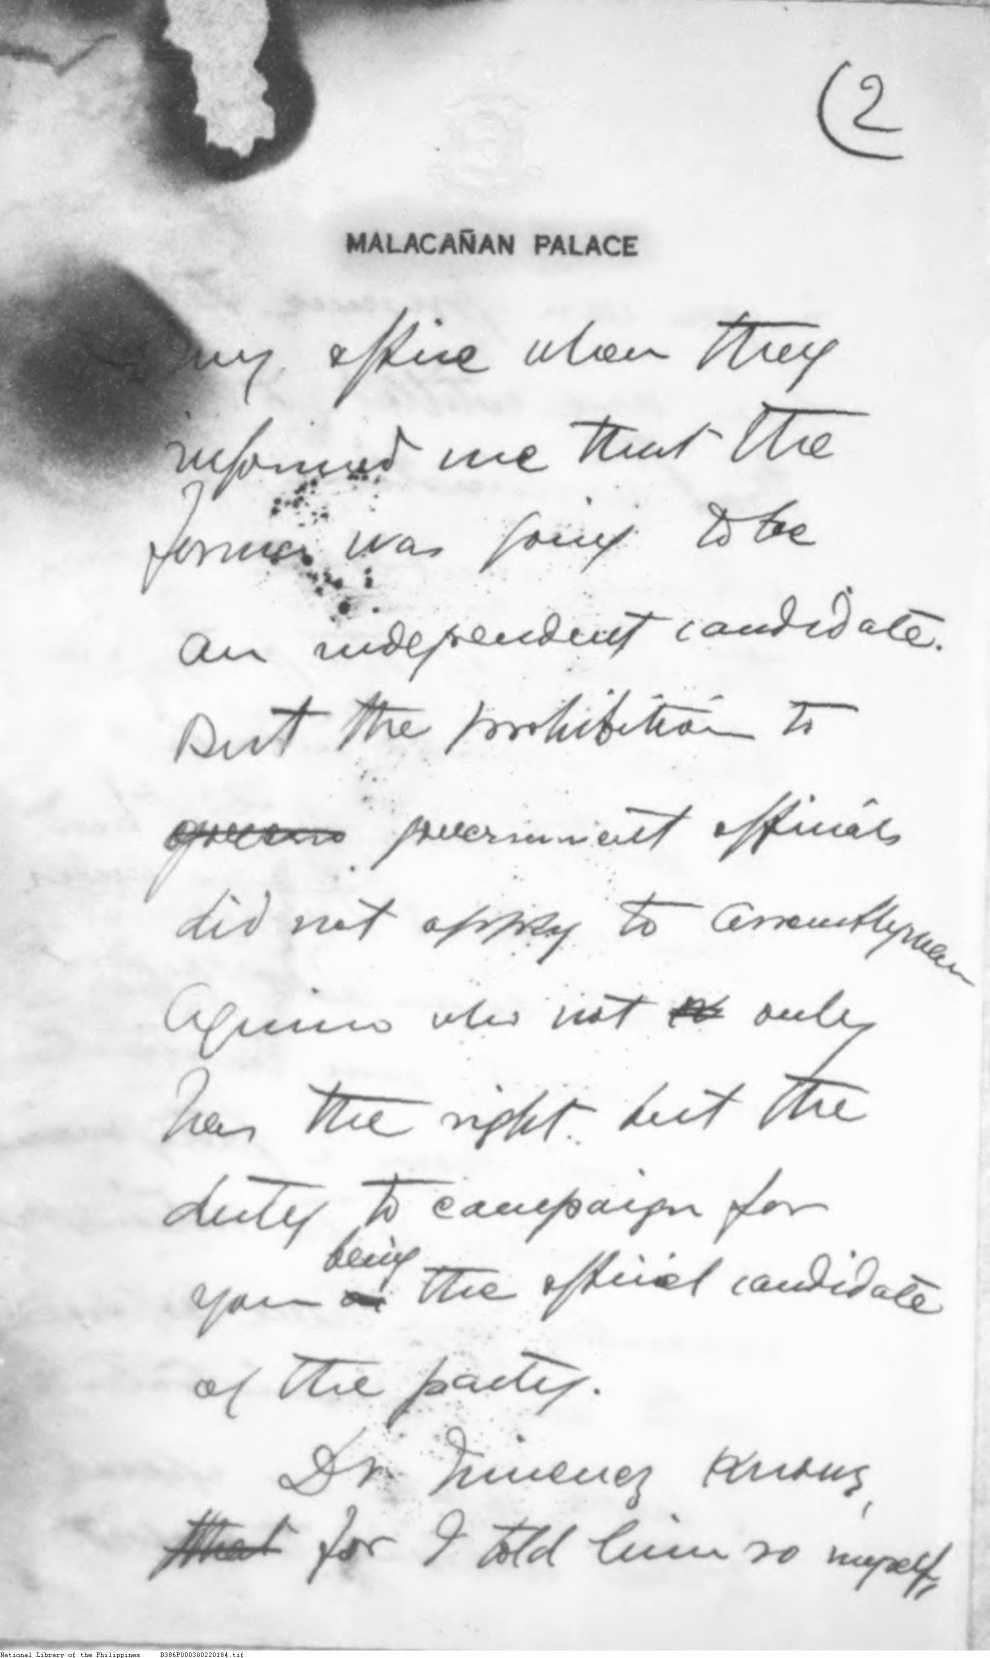 (2
MALACAÑAN PALACE
my office when they
informed me that the
former was going to be
an independent candidate.
But the prohibition to
governo government officials
did not apply to Assemblyman
Aquino who not only
has the right but the
duty to campaign for
being
you as the official candidate
of the party.
Dr. Jimenez knows,
that for I told him so myself,
National Library of the Philippines B386P000380220184.tif